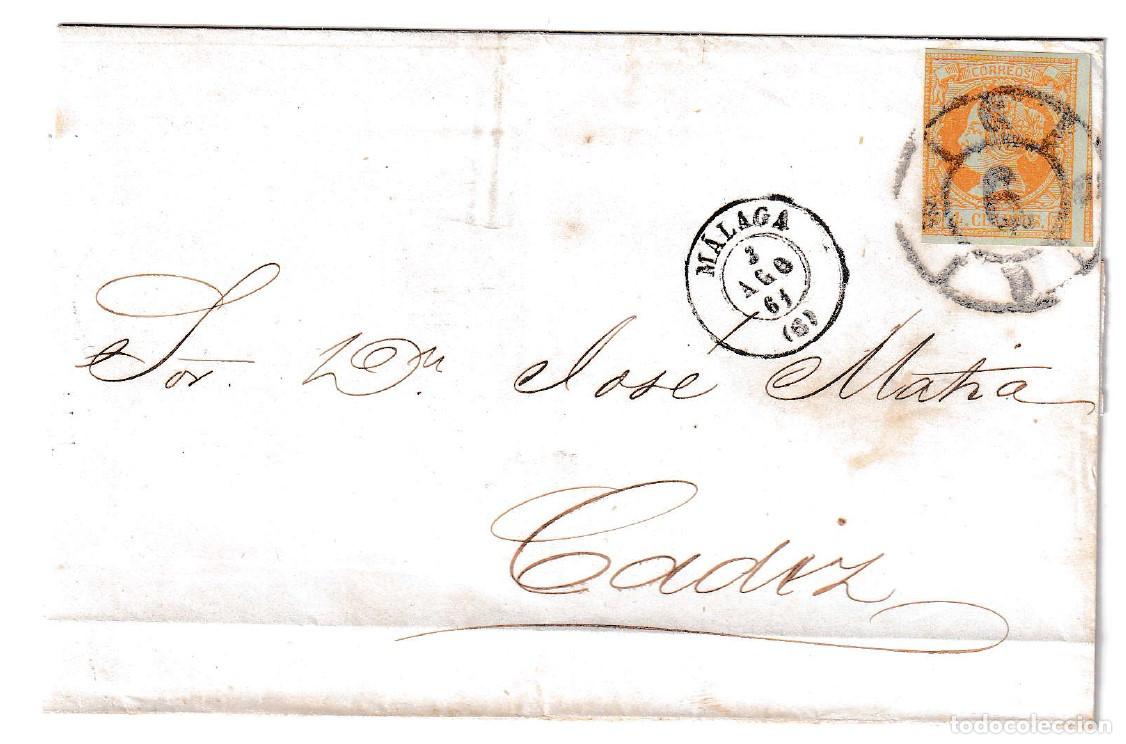 CORREOS
6
4 CUARTOS
MÁLAGA
3
AGO
61
(8)
Sor. Dn José Matia
Cadiz
todocoleccion